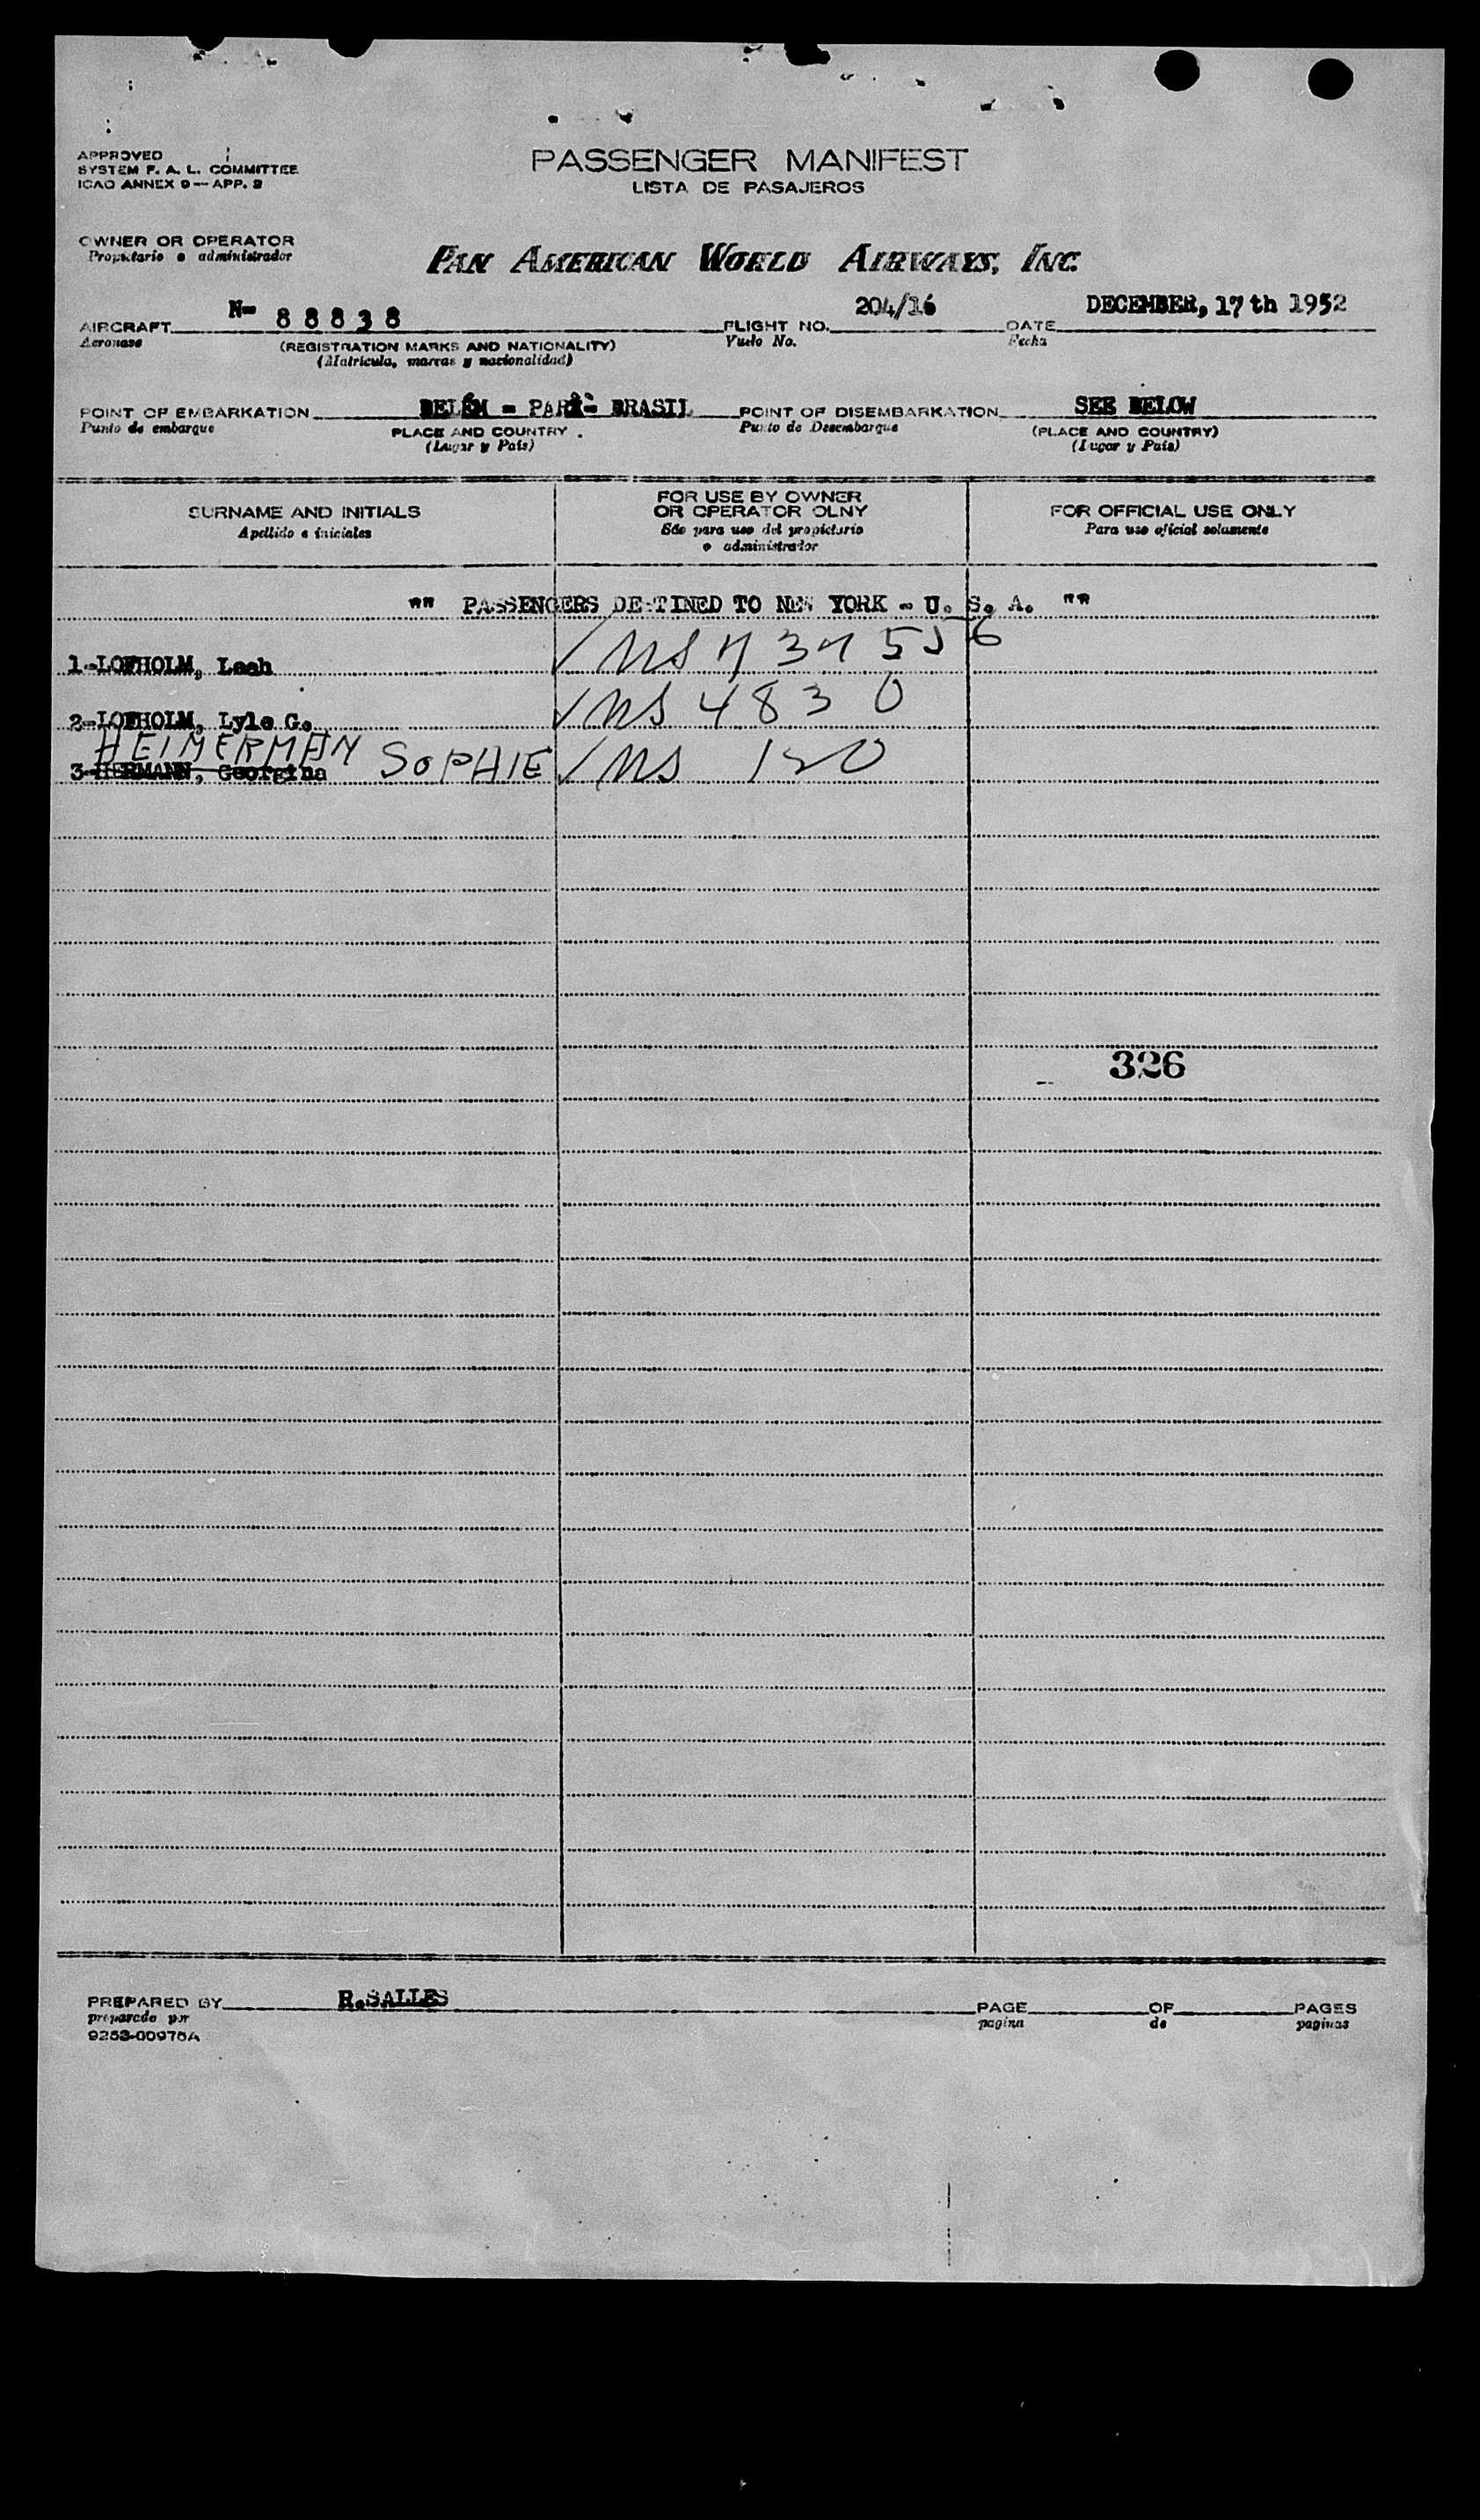 APPROVED
SYSTEM F. A. L. COMMITTEE
ICAO ANNEX 9 — APP. 2
PASSENGER MANIFEST
LISTA DE PASAJEROS
OWNER OR OPERATOR
Propietario o administrador
PAN AMERICAN WORLD AIRWAYS, INC.
AIRCRAFT N- 88838 FLIGHT NO. 204/16 DATE DECEMBER, 17th 1952
Aeronave (REGISTRATION MARKS AND NATIONALITY) Vuelo No. Fecha
(Matricula, marcas y nacionalidad)
POINT OF EMBARKATION BELÉM - PARÁ- BRASIL POINT OF DISEMBARKATION SEE BELOW
Punto de embarque PLACE AND COUNTRY Punto de Desembarque (PLACE AND COUNTRY)
(Lugar y Pais) (Lugar y Pais)
SURNAME AND INITIALS
Apellido e iniciales
FOR USE BY OWNER
OR OPERATOR OLNY
Sóo para uso del propietario
o administrador
FOR OFFICIAL USE ONLY
Para uso oficial solamente
"" PASSENGERS DESTINED TO NEW YORK - U. S. A. ""
1-LOFHOLM, Leah ✓
2-LOFHOLM, Lyle G. ✓ 4830
HEIMERMAN SOPHIE ✓ 120
3-HERMANN, Georgina
326
PREPARED BY R.SALLES PAGE OF PAGES
preparado por pagina de paginas
9253-00976A